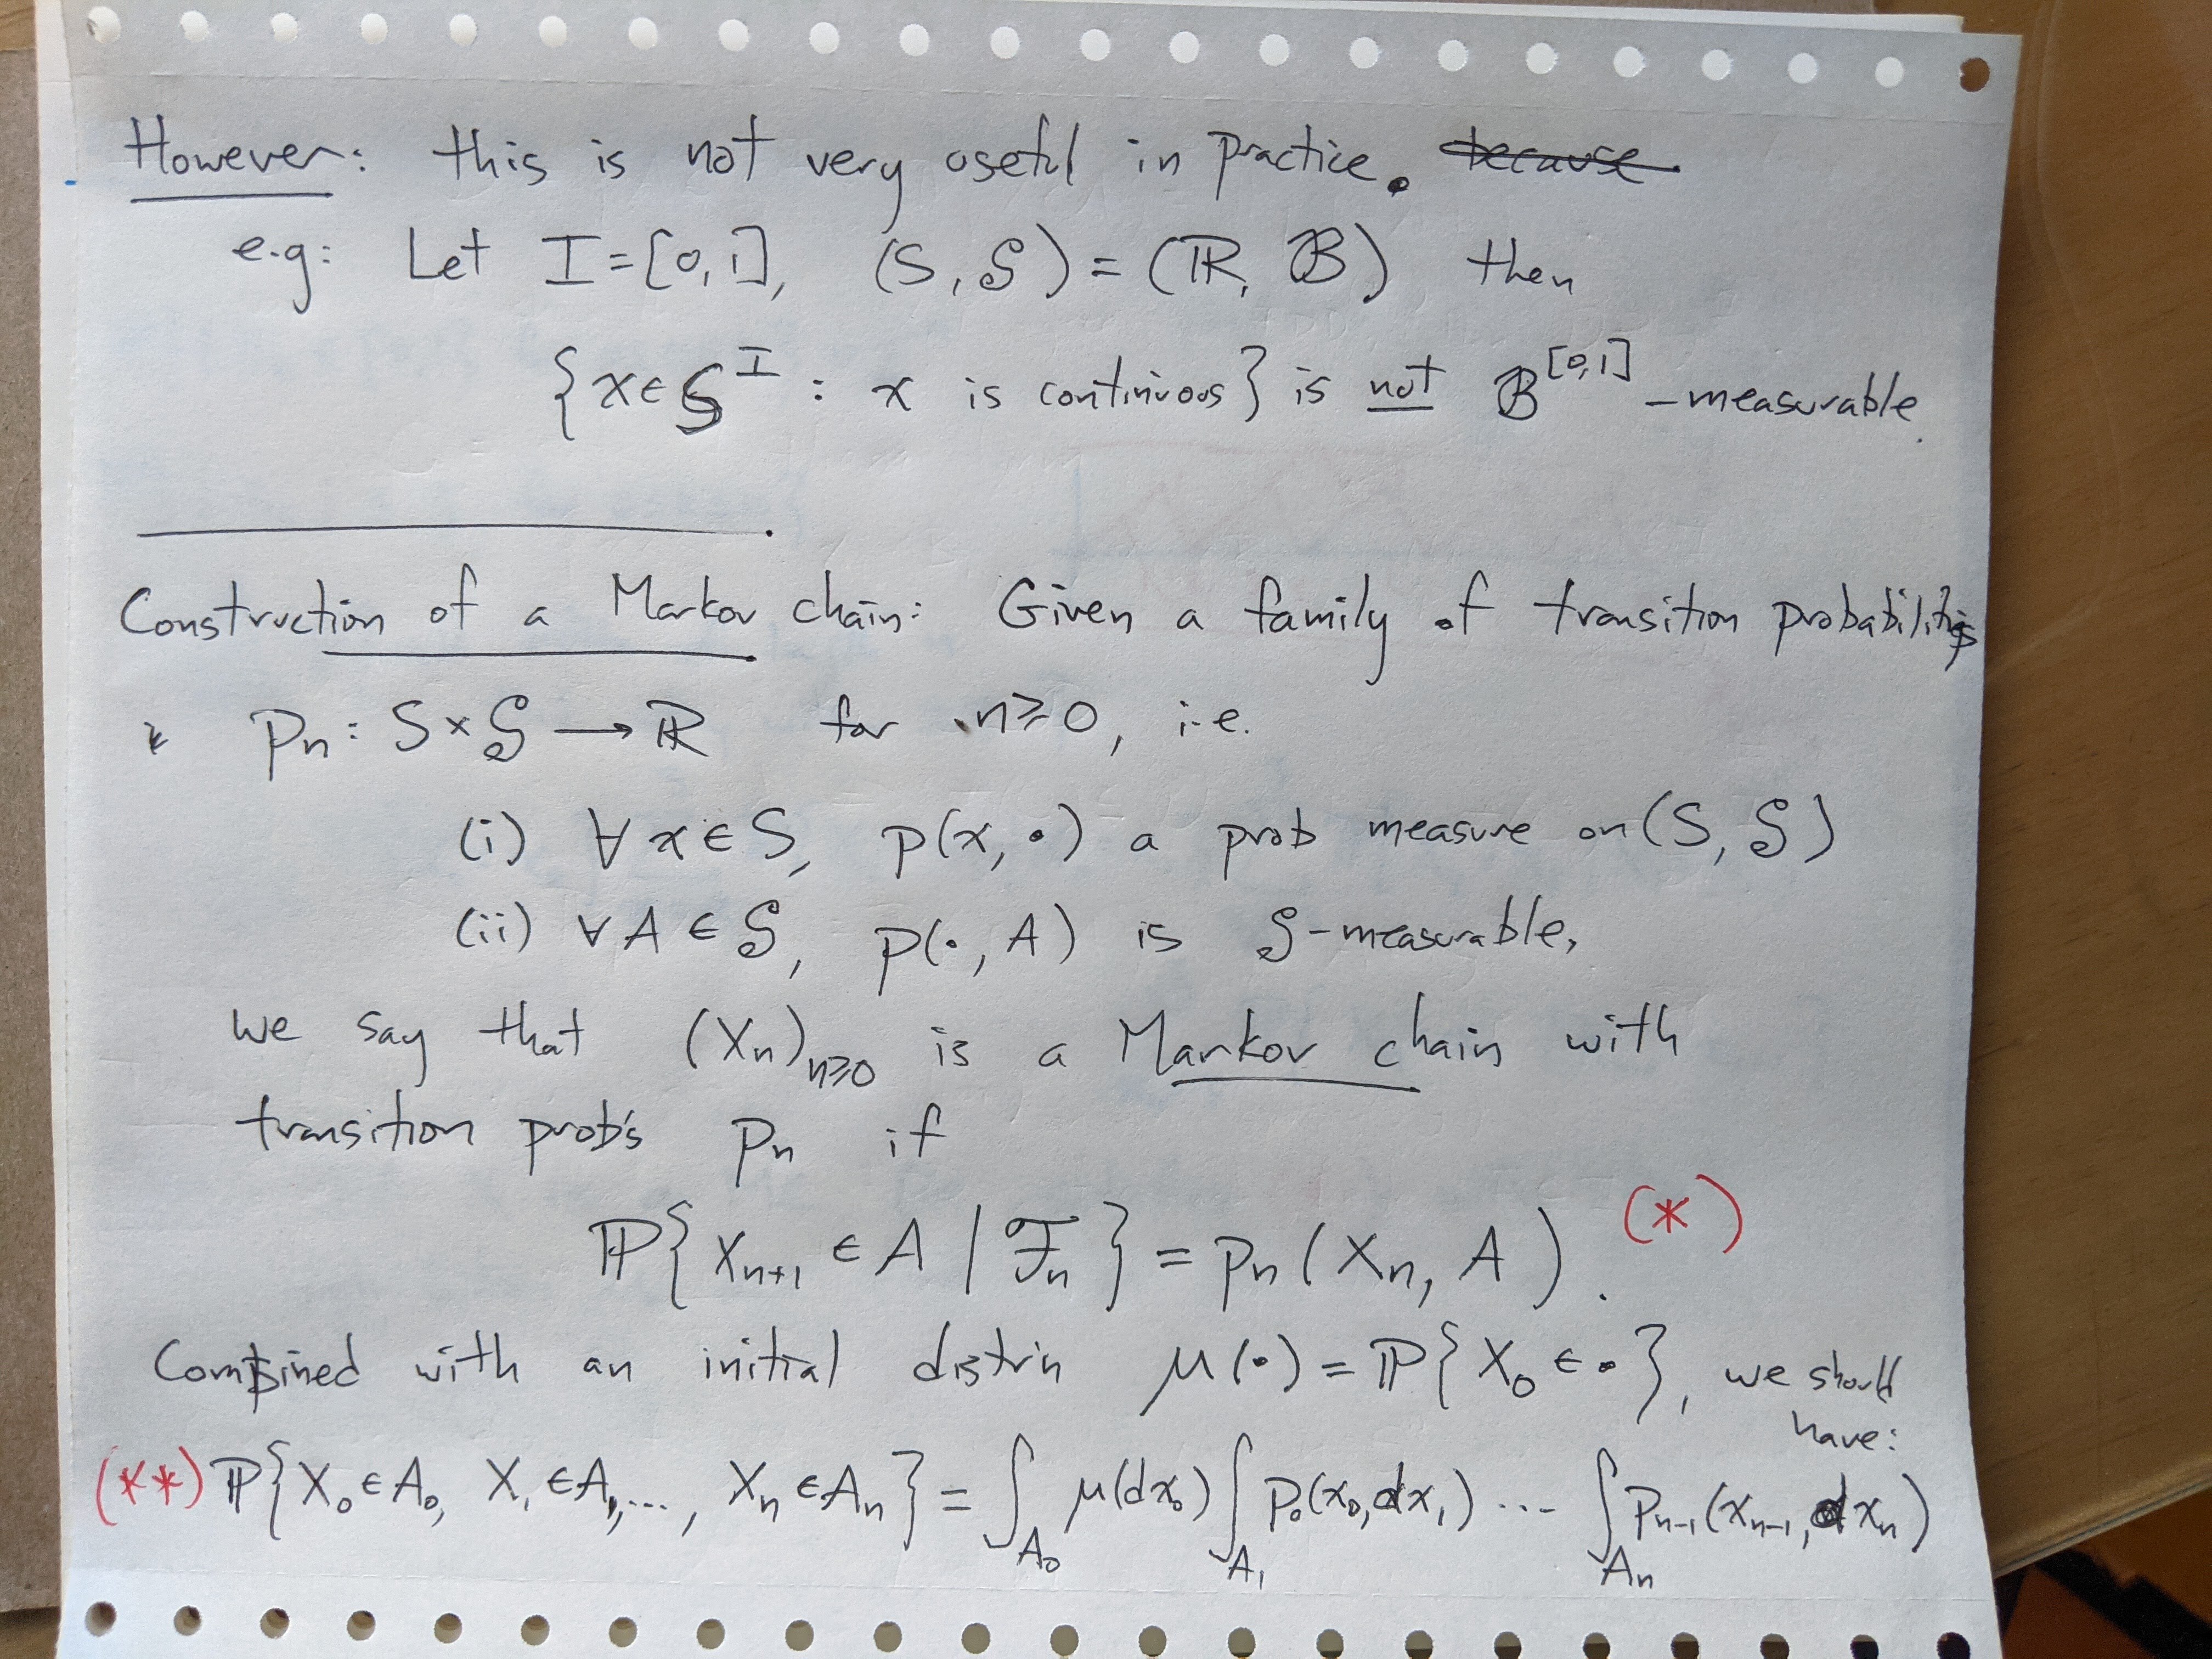 However: this is not very useful in practice. because
e.g: Let I=[0,1], (S, 𝒮) = (ℝ, ℬ) then
{x∈S^I : x is continuous} is not ℬ^[0,1] -measurable.
Construction of a Markov chain: Given a family of transition probabilities
pₙ: S×𝒮 → ℝ for n≥0, i.e.
(i) ∀x∈S, p(x, •) a prob measure on (S, 𝒮)
(ii) ∀A∈𝒮, p(•, A) is 𝒮-measurable,
we say that (Xₙ)ₙ≥₀ is a Markov chain with
transition prob's pₙ if
ℙ{Xₙ₊₁ ∈ A | ℱₙ} = pₙ(Xₙ, A). (*)
Combined with an initial distr'n μ(•) = ℙ{X₀ ∈ •}, we should
have:
(**) ℙ{X₀∈A₀, X₁∈A₁,..., Xₙ∈Aₙ} = ∫_A₀ μ(dx₀) ∫_A₁ p₀(x₀, dx₁) ... ∫_Aₙ pₙ₋₁(xₙ₋₁, dxₙ)